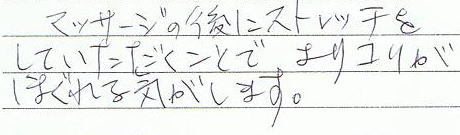 マッサージの後にストレッチを
していただくことで よりコリが
ほぐれる気がします。